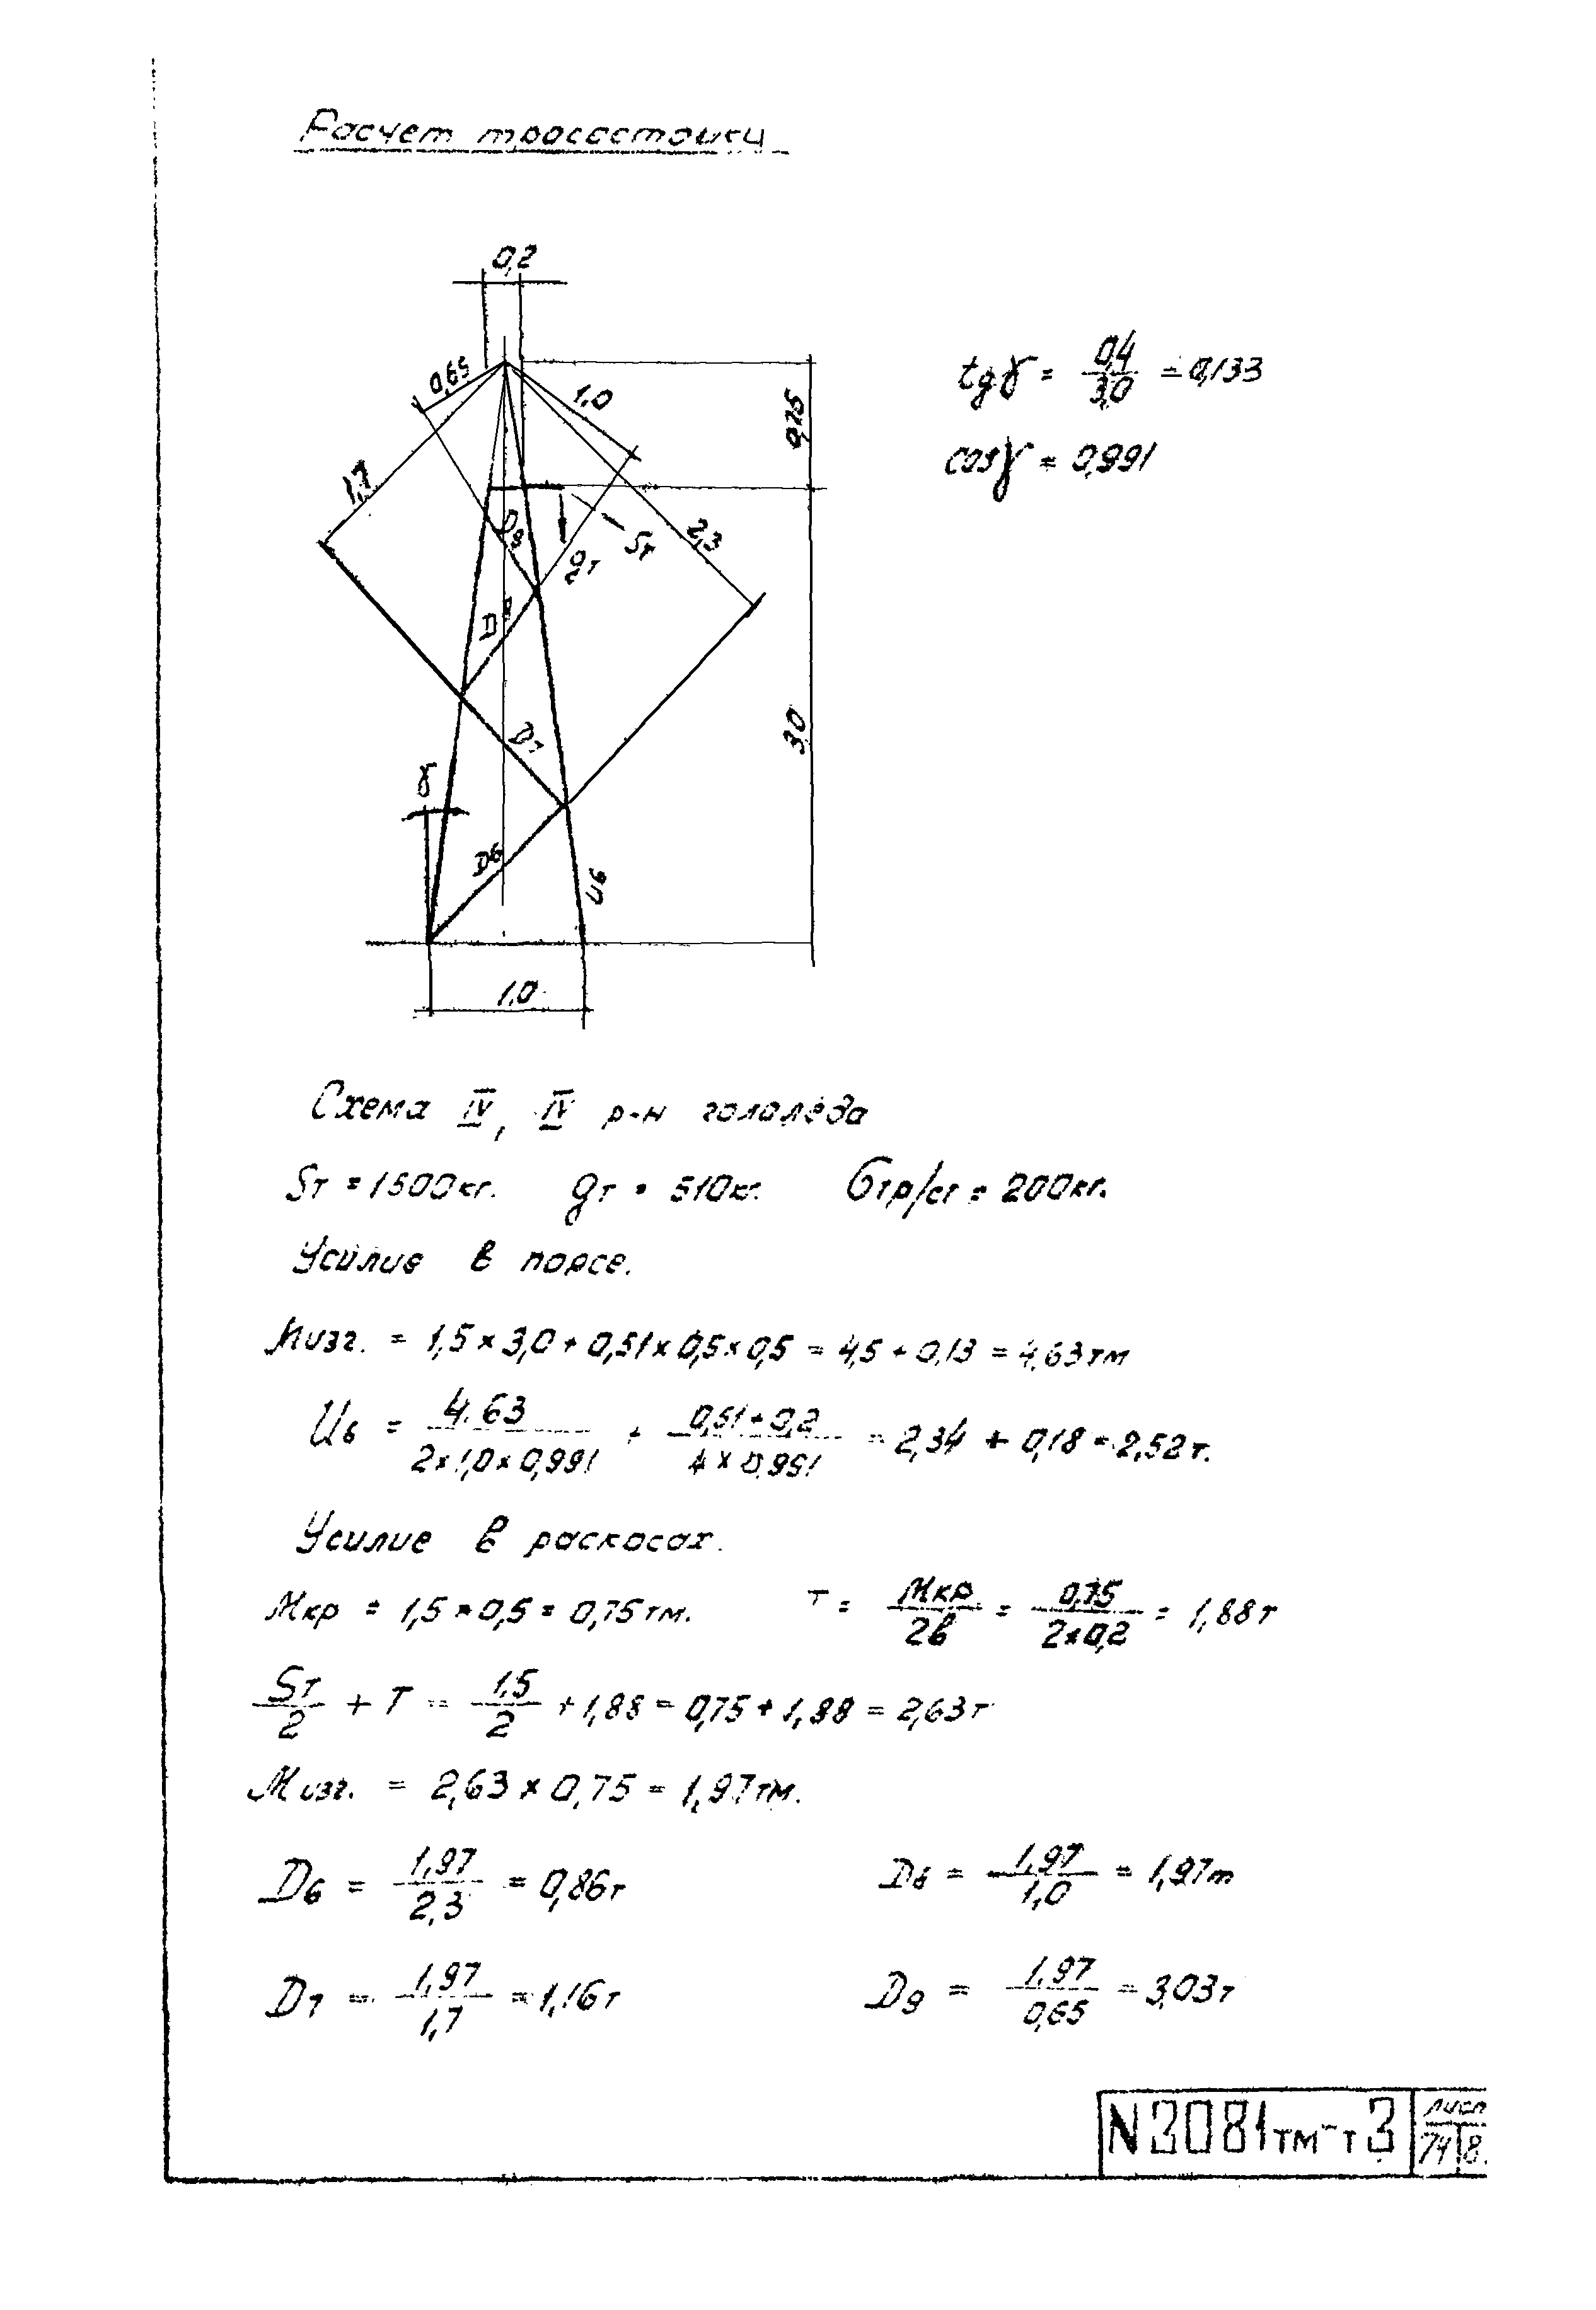 Расчет тросостойки
0,2
0,65
1.0
tgγ = 0,4/3,0 = 0,133
0,75
cosγ = 0,991
1,7
2,3
D9
Sт
gт
D8
3,0
D7
γ
D6
U6
1,0
Схема IV, IV р-н гололёда
Sт = 1500кг. gт = 510кг. Gтр/ст = 200кг.
Усилие в поясе.
Mизг. = 1,5 × 3,0 + 0,51 × 0,5 × 0,5 = 4,5 + 0,13 = 4,63тм
U6 = 4.63/2×1,0×0,991 + 0,51+0,2/4×0,991 = 2,34 + 0,18 = 2,52т.
Усилие в раскосах.
Мкр = 1,5 × 0,5 = 0,75тм. T = Мкр/2в = 0,75/2×0,2 = 1,88т
Sт/2 + T = 1,5/2 + 1,88 = 0,75 + 1,88 = 2,63т
Мизг. = 2,63 × 0,75 = 1,97тм.
D6 = 1,97/2,3 = 0,86т D8 = 1,97/1,0 = 1,97т
D7 = 1,97/1,7 = 1,16т D9 = 1,97/0,65 = 3,03т
N3081тм-т3
лист
74 8.